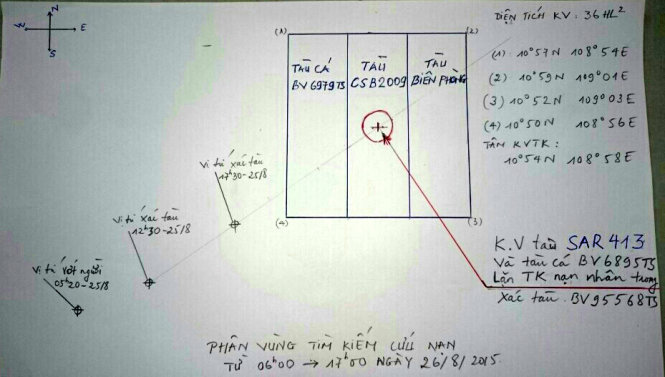 N
W E
S
(1)
(2)
TÀU CÁ
BV 6979TS
TÀU
CSB2009
TÀU
BIÊN PHÒNG
(4)
(3)
DIỆN TÍCH KV: 36 HL²
(1) 10°57N 108°54E
(2) 10°59N 109°01E
(3) 10°52N 109°03E
(4) 10°50N 108°56E
TÂM KVTK:
10°54N 108°58E
Vị trí xác tàu
17h30-25/8
Vị trí xác tàu
12h30-25/8
Vị trí vớt người
05h20-25/8
K.V tàu SAR 413
Và tàu cá BV6895TS
Lặn TK nạn nhân trong
Xác tàu BV95568TS
PHÂN VÙNG TÌM KIẾM CỨU NẠN
TỪ 06h00 → 17h00 NGÀY 26/8/2015